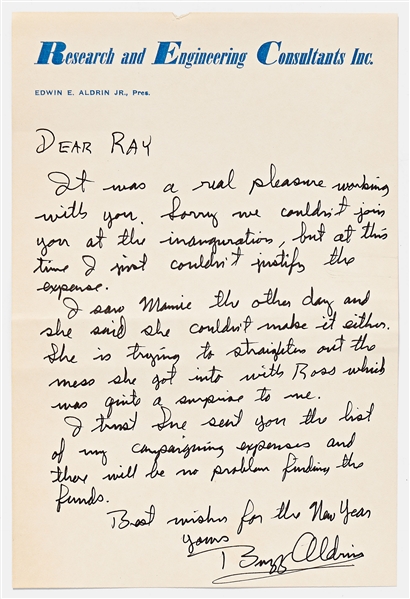 Research and Engineering Consultants Inc.
EDWIN E. ALDRIN JR., Pres.
DEAR RAY
It was a real pleasure working
with you. Sorry we couldn't join
you at the inauguration, but at this
time I just couldn't justify the
expense.
I saw Mamie the other day and
she said she couldn't make it either.
She is trying to straighten out the
mess she got into with Ross which
was quite a surprise to me.
I trust she sent you the list
of my campaigning expenses and
there will be no problem finding the
funds.
Best wishes for the New Year
yours
Buzz Aldrin